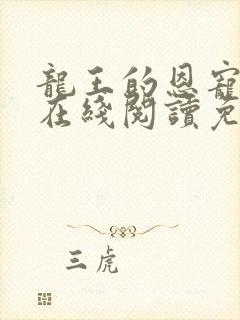 龍王的恩寵
在綫閱讀免
三虎